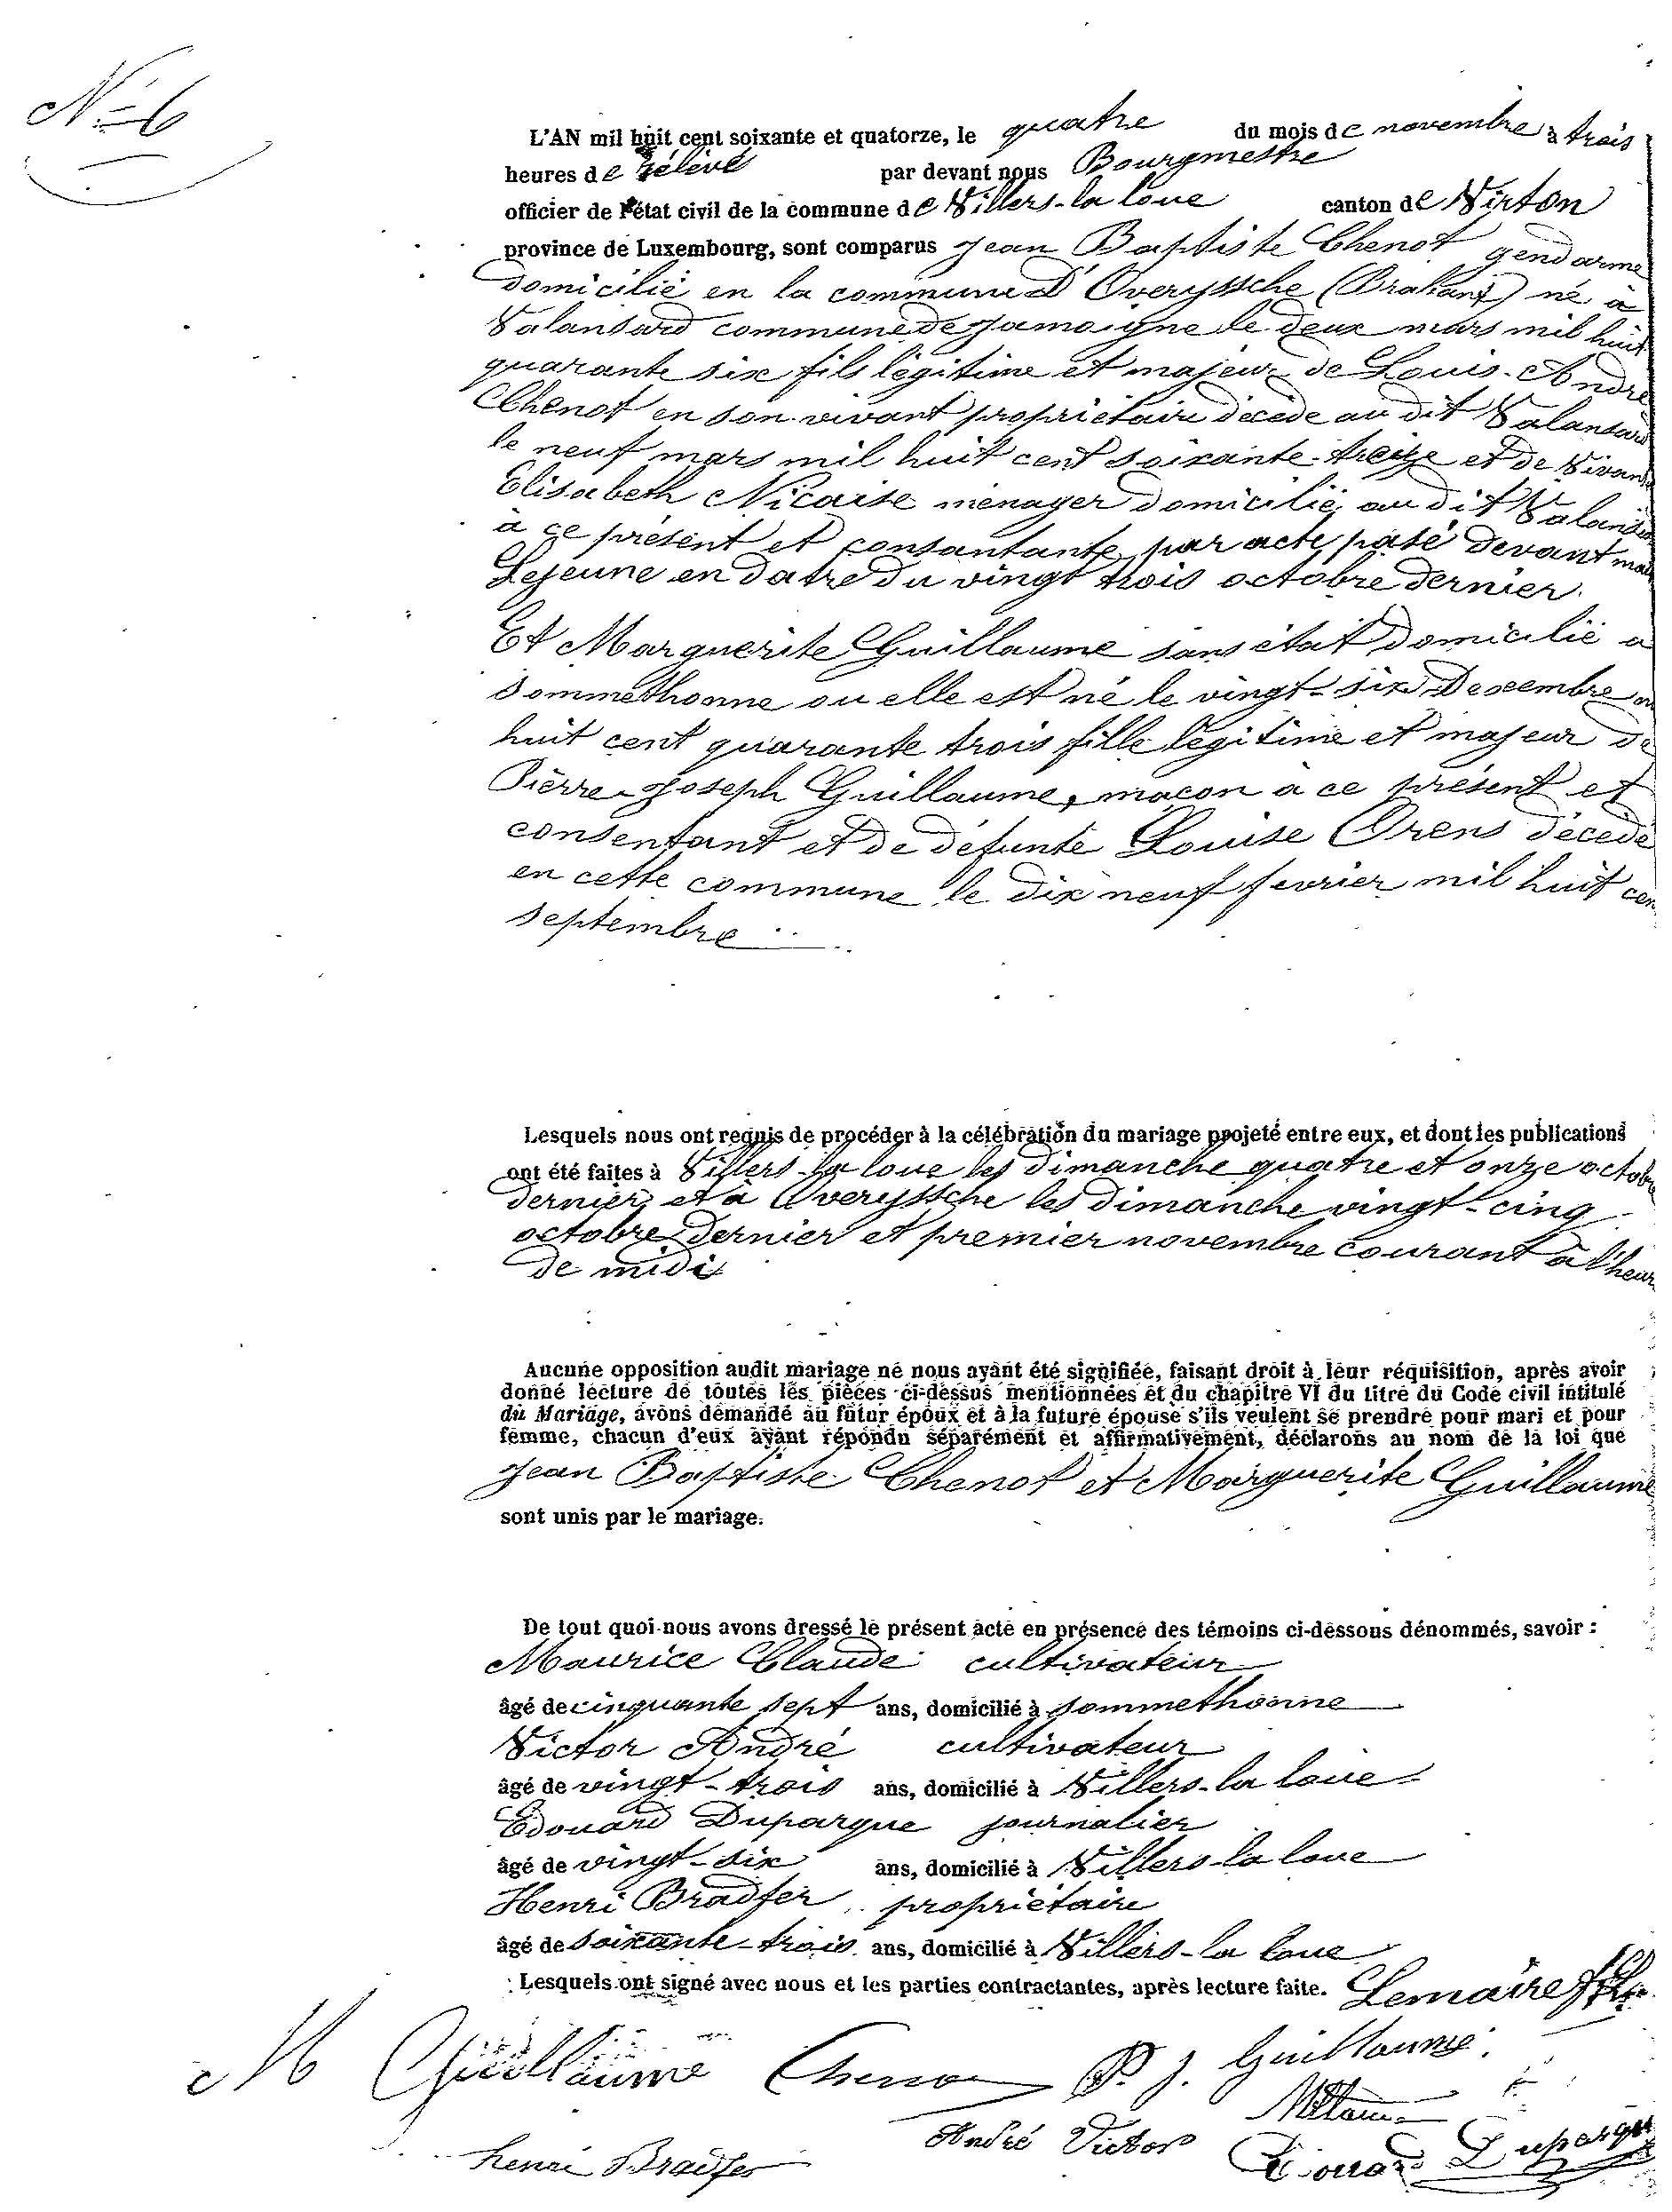 N° 6
L'AN mil huit cent soixante et quatorze, le quatre du mois de novembre à trois
heures de rélévé par devant nous Bourgmestre
officier de l'état civil de la commune de Villers-la loue canton de Virton
province de Luxembourg, sont comparus Jean Baptiste Chenot gendarme
domicilié en la commune d'Overyssche (Brabant) né à
Valansard commune de Jamoigne le deux mars mil huit
quarante six fils légitime et majeur de Louis-André
Chenot en son vivant propriétaire décédé au dit Valansard
le neuf mars mil huit cent soixante-treize et de vivante
Elisabeth Nicaise ménager domicilié au dit Valansard
à ce présent et consantante par acte pasé devant
Lejeune en datre du vingt trois octobre dernier.
Et Marguerite Guillaume sans état domicilié a
Sommethonne ou elle est né le vingt-six Desembre
huit cent quarante trois fille légitime et majeur de
Pierre-Joseph Guillaume, maçon a ce présent et
consentant et de défunte Louise Orens décédé
en cette commune le dix neuf fevrier mil huit cent
septembre
Lesquels nous ont requis de procéder à la célébration du mariage projeté entre eux, et dont les publications
ont été faites à Villers-la loue les dimanche quatre et onze octobre
dernier et à Overyssche les dimanche vingt-cinq
octobre dernier et premier novembre courant à l'heure
de midi
Aucune opposition audit mariage ne nous ayant été signifiée, faisant droit à leur réquisition, après avoir
donné lecture de toutes les pièces ci-dessus mentionnées et du chapitre VI du titre du Code civil intitulé
du Mariage, avons demandé au futur époux et à la future épouse s'ils veulent se prendre pour mari et pour
femme, chacun d'eux ayant répondu séparément et affirmativement, déclarons au nom de la loi que
Jean Baptiste Chenot et Marguerite Guillaume
sont unis par le mariage.
De tout quoi nous avons dressé le présent acte en présence des témoins ci-dessous dénommés, savoir :
Maurice Claude cultivateur
âgé de cinquante sept ans, domicilié à Sommethonne
Victor André cultivateur
âgé de vingt-trois ans, domicilié à Villers-la loue
Edouard Duparque journalier
âgé de vingt-six ans, domicilié à Villers-la loue
Henri Bradfer propriétaire
âgé de soixante-trois ans, domicilié à Villers-la loue
Lesquels ont signé avec nous et les parties contractantes, après lecture faite. Lemaire fils
M Guillaume Chenot P. J. Guillaume
André Victor
henri Bradfer Edouard Duparque